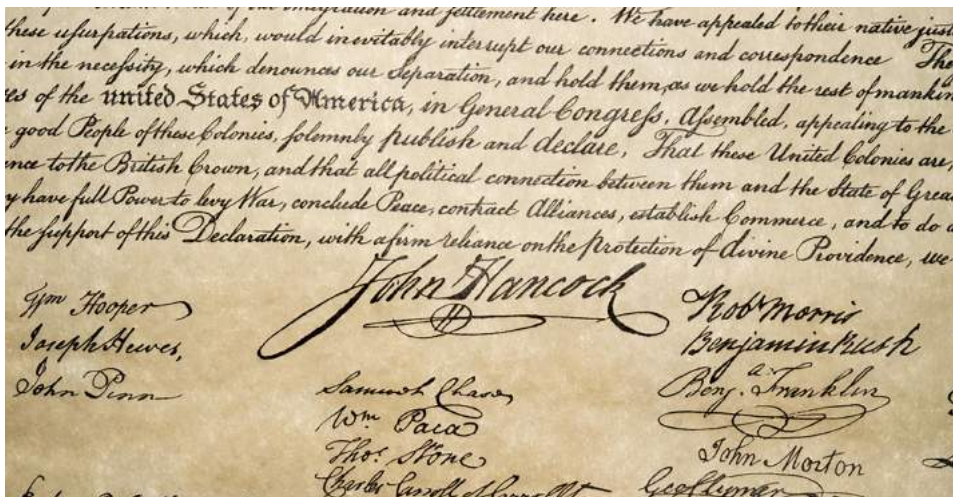 migration and settlement here. We have appealed to their native just
these usurpations, which, would inevitably interrupt our connections and correspondence The
in the necessity, which denounces our Separation, and hold them, as we hold the rest of mankin
es of the united States of America, in General Congress, Assembled, appealing to the
good People of these Colonies, solemnly publish and declare, That these United Colonies are,
ence to the British Crown, and that all political connection between them and the State of Grea
y have full Power to levy War, conclude Peace, contract Alliances, establish Commerce, and to do a
the support of this Declaration, with a firm reliance on the protection of divine Providence, we
John Hancock
Wm Hooper
Joseph Hewes,
John Penn
Samuel Chase
Wm Paca
Thos. Stone
Charles Carroll of
Robt Morris
Benjamin Rush
Benj. Franklin
John Morton
Geo Clymer